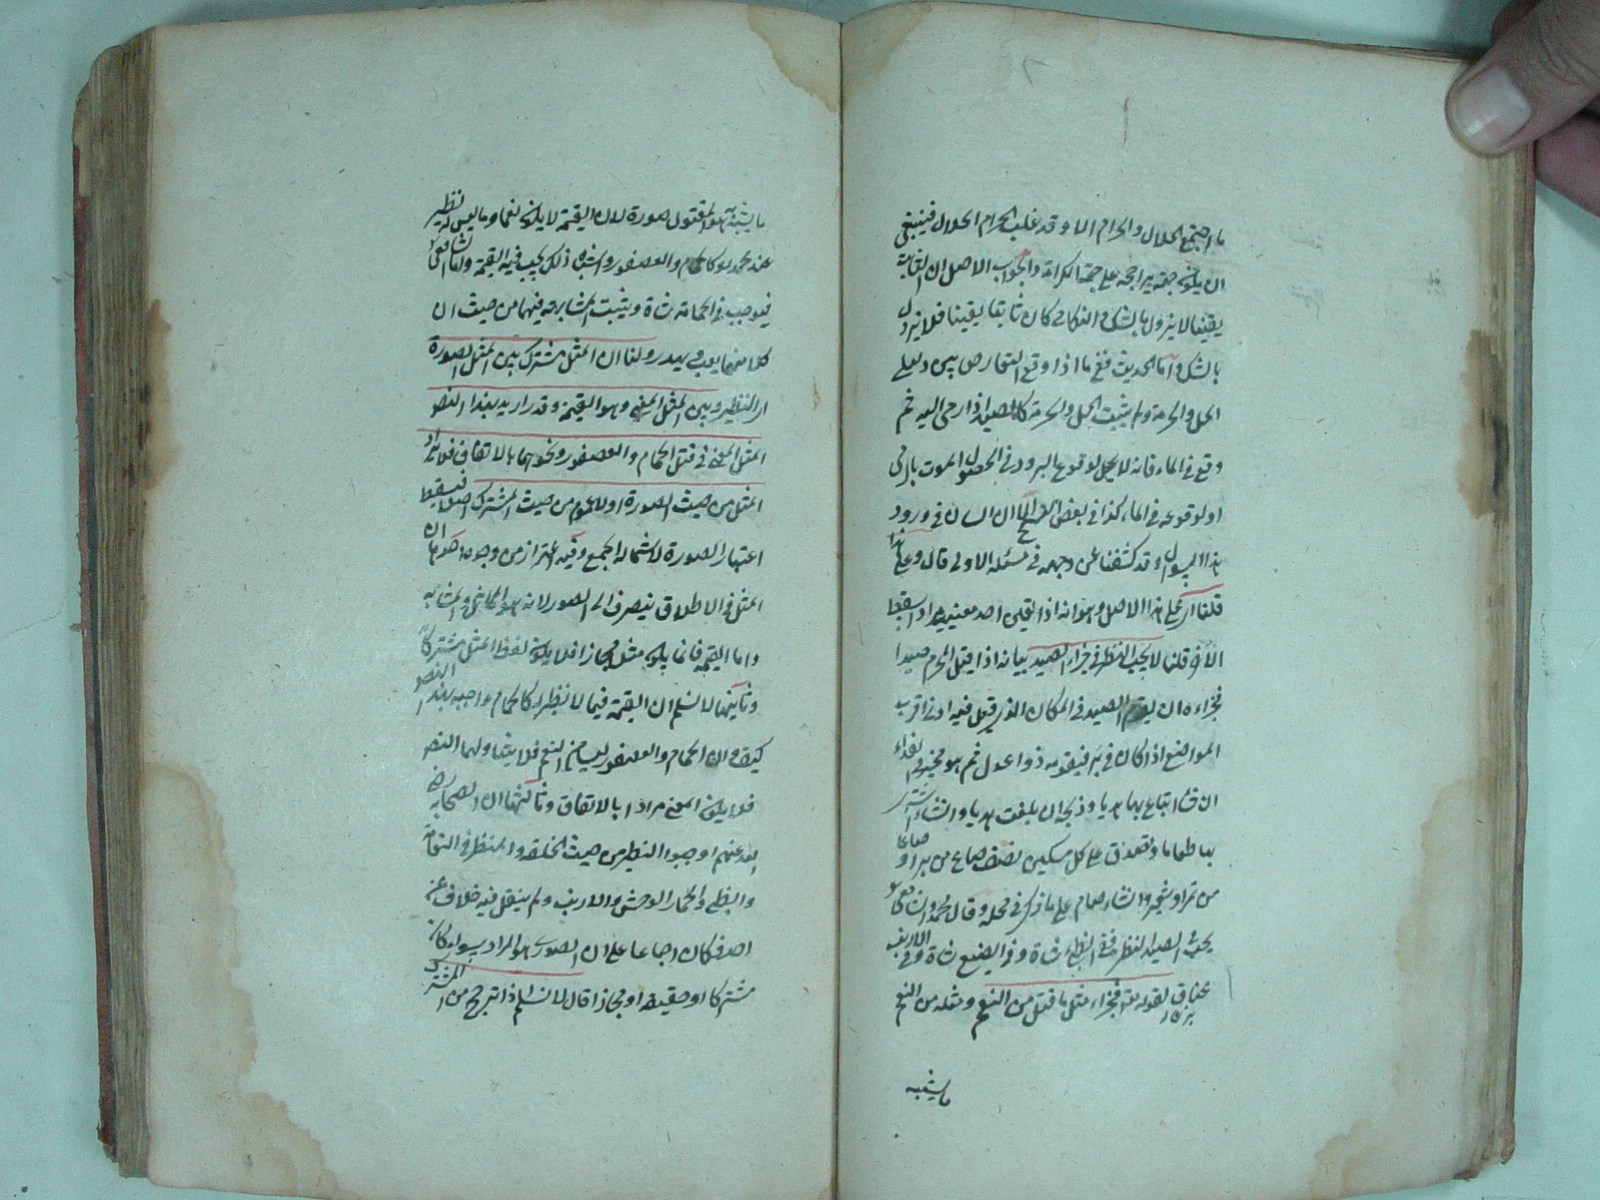 ما اجتمع الحلال والحرام الا وقد غلب الحرام الحلال فينبغي
ان يكون جهته راجحة على جهة الكراهة والجواب الاصل ان الثابت
يقينا لا يزول بالشك والنكاح كان ثابتا يقينا فلا يزول
بالشك واما الحديث ففي ما اذا وقع التعارض بين دليلي
الحل والحرمة ولم يثبت الحل والحرمة كالصيد اذا رمى اليه ثم
وقع في الماء فانه لا يحل لوقوع التردد في الحصول الموت بالرمي
او لوقوعه في الماء كذا في بعض الشرح الا ان السان في ورود
هذا السؤال وقد كشفنا عن وجهه في مسئلة الاولى قال وعلى هذا
قلنا اي على هذا الاصل وهو انه اذا تعين احد معنييه مرادا سقط
الآخر قلنا لا يجب النظير في جزاء الصيد بيانه اذا قتل المحرم صيدا
فجزاءه ان يقوم الصيد في المكان الذي قتل فيه او في اقرب
المواضع اذا كان في بر فيقومه ذوا عدل ثم هو مخير في الفداء
ان شاء ابتاع بها هديا وذبحه ان بلغت هديا وان شاء اشترى
بها طعاما وتصدق على كل مسكين نصف صاع من بر او صاعا
من تمر او شعير وان شاء صام على ما ذكر في محله وقال محمد والشافعي
يجب في الصيد النظير ففي الظبي شاة وفي الضبع شاة وفي الارنب
عناق لقوله تعالى فجزاء مثل ما قتل من النعم ومثله من النعم
ما يشبه
ما يشبه هو المقتول صورة لان القيمة لا يكون نعما وما ليس له نظير
عند محمد هو كالحمام والعصفور واشباه ذلك يجب فيه القيمة واما الشافعي
فيوجب في الحمامة شاة ويثبت المشابهة فيهما من حيث ان
كلا منهما يعب ويهدر ولنا ان المثل مشترك بين المثل الصورة
اي النظير وبين المثل المعنى وهو القيمة وقد اريد بهذا النص
المثل المعنى في قتل الحمام والعصفور ونحوهما بالاتفاق فلا يراد
المثل من حيث الصورة اذ لا عموم من حيث المشترك اصلا فيسقط
اعتبار الصورة لاستحالة الجمع وفيه اعتراض من وجوه احدها ان
المثل في الاطلاق ينصرف الى الصورة لانه هو المماثل والمشابه
واما القيمة فانما يكون مثل مجازا فلا يكون لفظ المثل مشتركا
وثانيها لا نسلم ان القيمة فيما لا نظير له كالحمام واجب بهذا النص
كيف وان الحمام والعصفور ليسا من النعم فلا يتناولهما النص
فلا يكون المعنى مرادا بالاتفاق وثالثها ان الصحابة رضي
الله عنهم اوجبوا النظير من حيث الخلقة والمنظر في النعامة
والظبي والحمار الوحش والارنب ولم ينقل فيه خلاف عن
احد فكان اجماعا على ان الصورة هو المراد سواء كان
مشتركا او حقيقة او مجازا قال لا نسلم اذا ترجح من المشترك